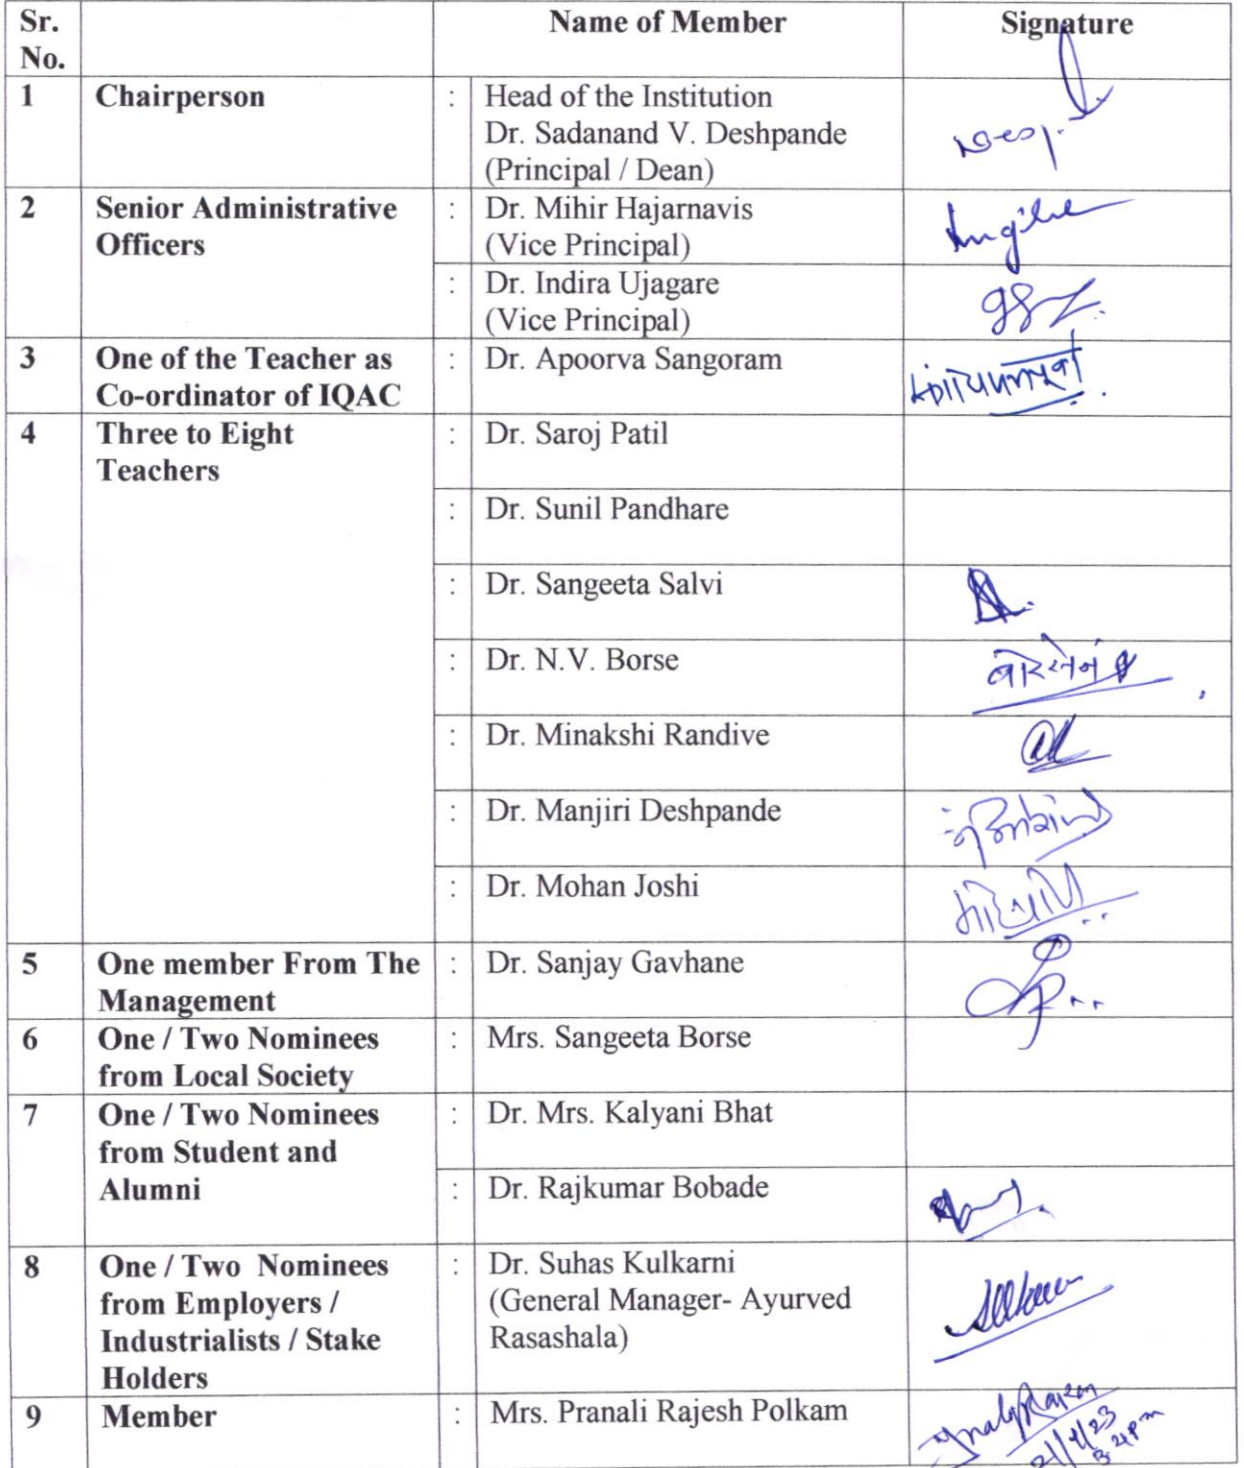 Sr. No. Name of Member Signature
1 Chairperson : Head of the Institution
Dr. Sadanand V. Deshpande
(Principal / Dean)
2 Senior Administrative Officers : Dr. Mihir Hajarnavis
(Vice Principal)
: Dr. Indira Ujagare
(Vice Principal)
3 One of the Teacher as Co-ordinator of IQAC : Dr. Apoorva Sangoram
4 Three to Eight Teachers : Dr. Saroj Patil
: Dr. Sunil Pandhare
: Dr. Sangeeta Salvi
: Dr. N.V. Borse
: Dr. Minakshi Randive
: Dr. Manjiri Deshpande
: Dr. Mohan Joshi
5 One member From The Management : Dr. Sanjay Gavhane
6 One / Two Nominees from Local Society : Mrs. Sangeeta Borse
7 One / Two Nominees from Student and Alumni : Dr. Mrs. Kalyani Bhat
: Dr. Rajkumar Bobade
8 One / Two Nominees from Employers / Industrialists / Stake Holders : Dr. Suhas Kulkarni
(General Manager- Ayurved
Rasashala)
9 Member : Mrs. Pranali Rajesh Polkam